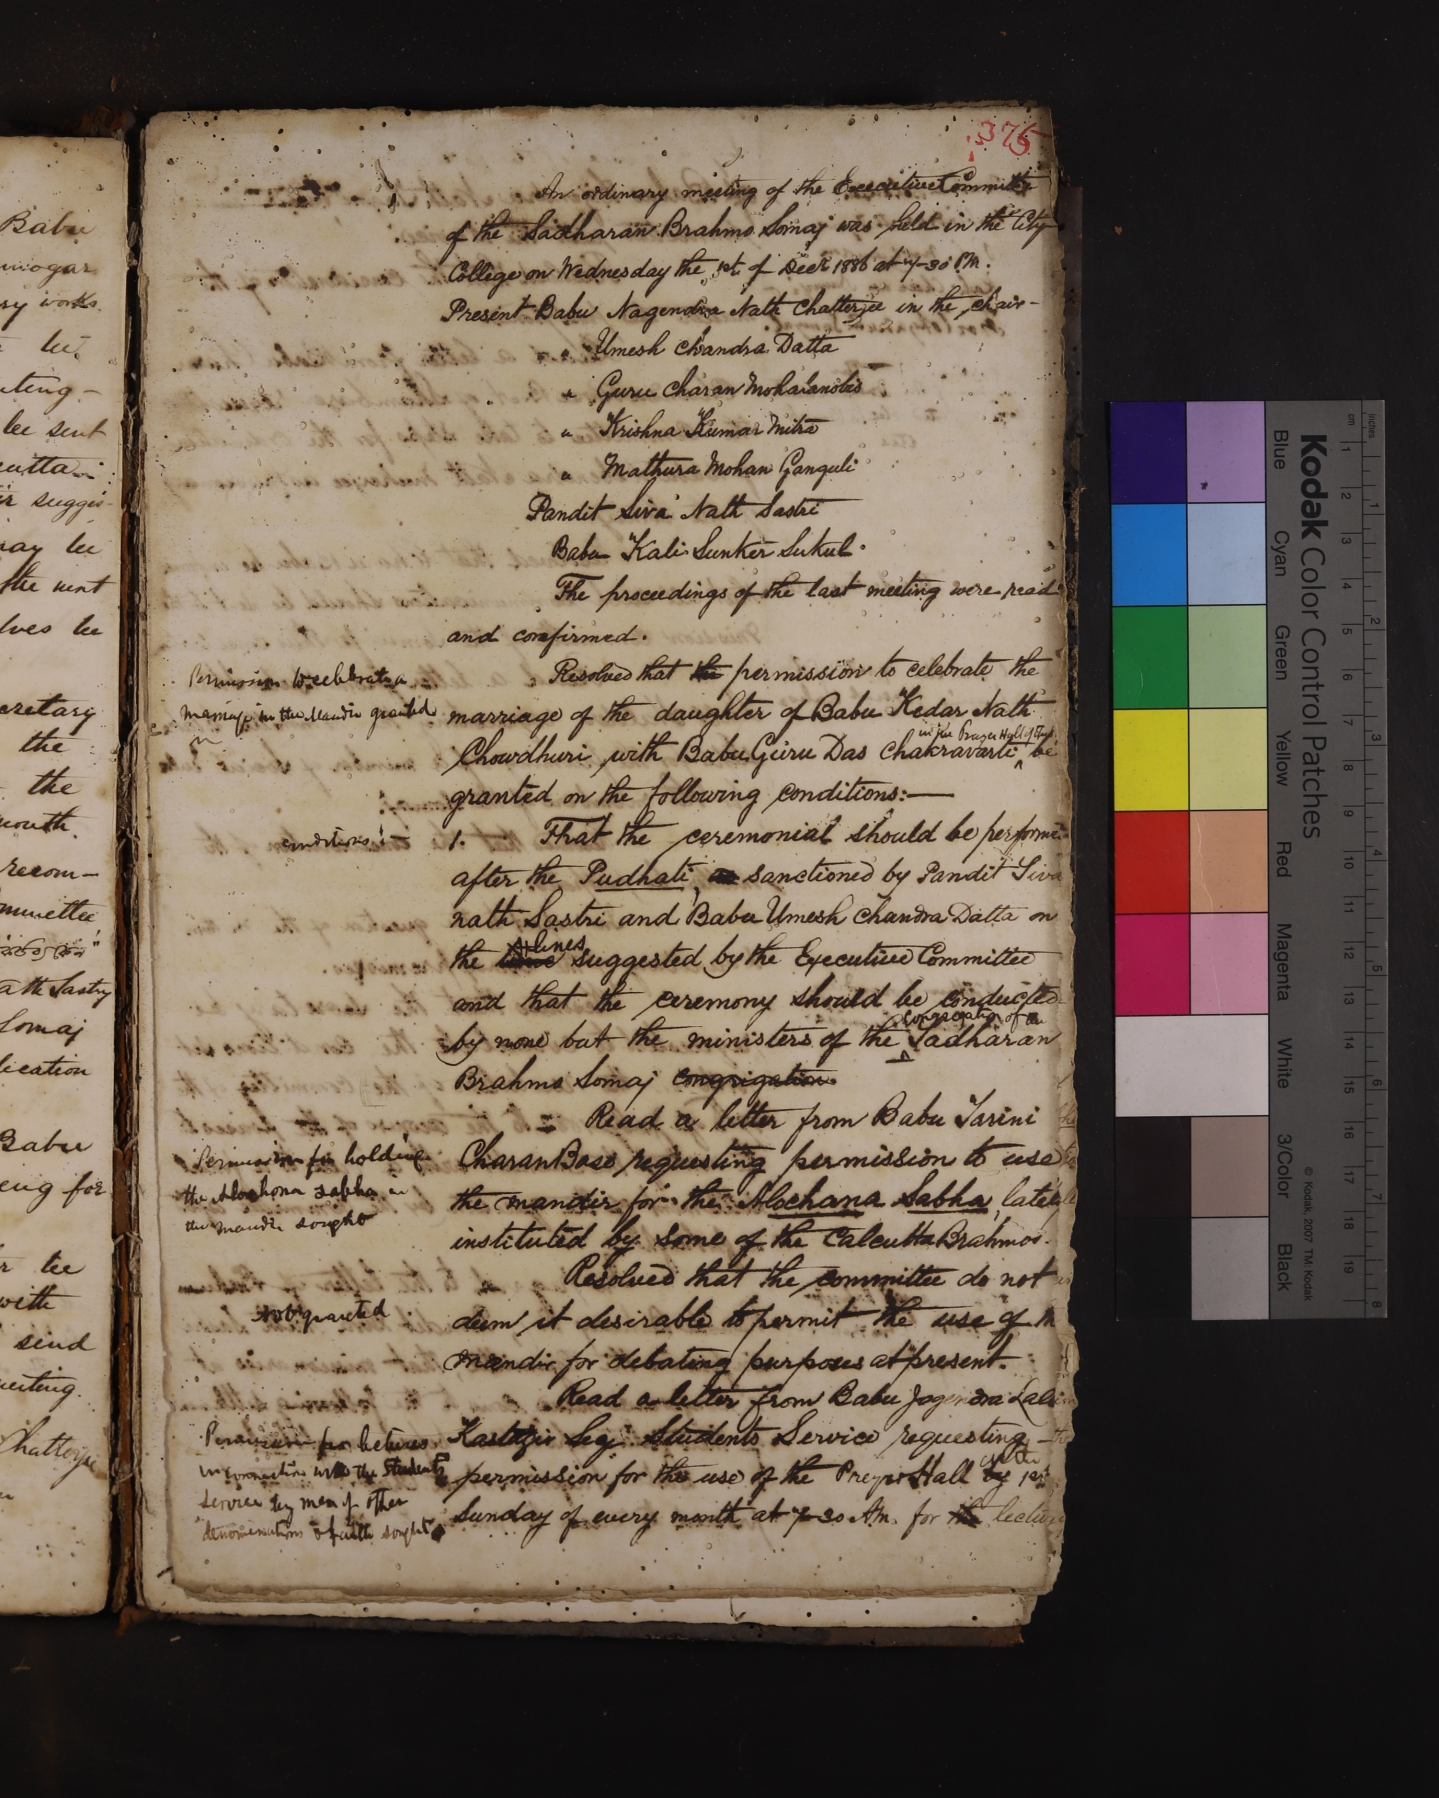 Babu
ry works.
be sent
may be
the
the
month.
recom-
Somaj
lication
Babu
with
send
375
An ordinary meeting of the Executive Committee
of the Sadharan Brahmo Somaj was held in the City
College on Wednesday the 1st. of Decr 1886 at 7-30 P.M.
Present Babu Nagendra Nath Chatterjee in the chair-
" Umesh Chandra Datta
" Guru Charan Mohalanobis
" Krishna Kumar Mitra
" Mathura Mohan Ganguli
Pandit Siva Nath Sastri
Babu Kali Sunker Sukul.
The proceedings of the last meeting were read
and confirmed.
Permission to celebrate a
marriage in the Mandir granted
Resolved that the permission to celebrate the
marriage of the daughter of Babu Kedar Nath
in the Prayer Hall of
Chowdhuri with Babu Guru Das Chakravarti be
granted on the following conditions:—
conditions:—
1. That the ceremonial should be performed
after the Pudhati, as sanctioned by Pandit Siva
nath Sastri and Babu Umesh Chandra Datta on
the lines suggested by the Executive Committee
and that the ceremony should be conducted
congregation of
by none but the ministers of the Sadharan
Brahmo Somaj congrigation.
Permission for holding
the Alochona Sabha in
the Mandir sought
Read a letter from Babu Tarini
Charan Bose requesting permission to use
the mandir for the Alochana Sabha, lately
instituted by some of the Calcutta Brahmos.
not granted
Resolved that the committee do not
deem it desirable to permit the use of
mandir for debating purposes at present.
Permission for lectures
in connection with the Students
Service by men of other
denominations of faith sought
Read a letter from Babu Jogendra Lal
Kastogir Secy Students Service requesting
permission for the use of the Prayer Hall 1st
Sunday of every month at 7-30 A.M. for the lecture
Kodak Color Control Patches
Blue Cyan Green Yellow Red Magenta White 3/Color Black
© Kodak, 2007 TM: Kodak
cm 1 2 3 4 5 6 7 8 9 10 11 12 13 14 15 16 17 18 19
Inches 1 2 3 4 5 6 7 8